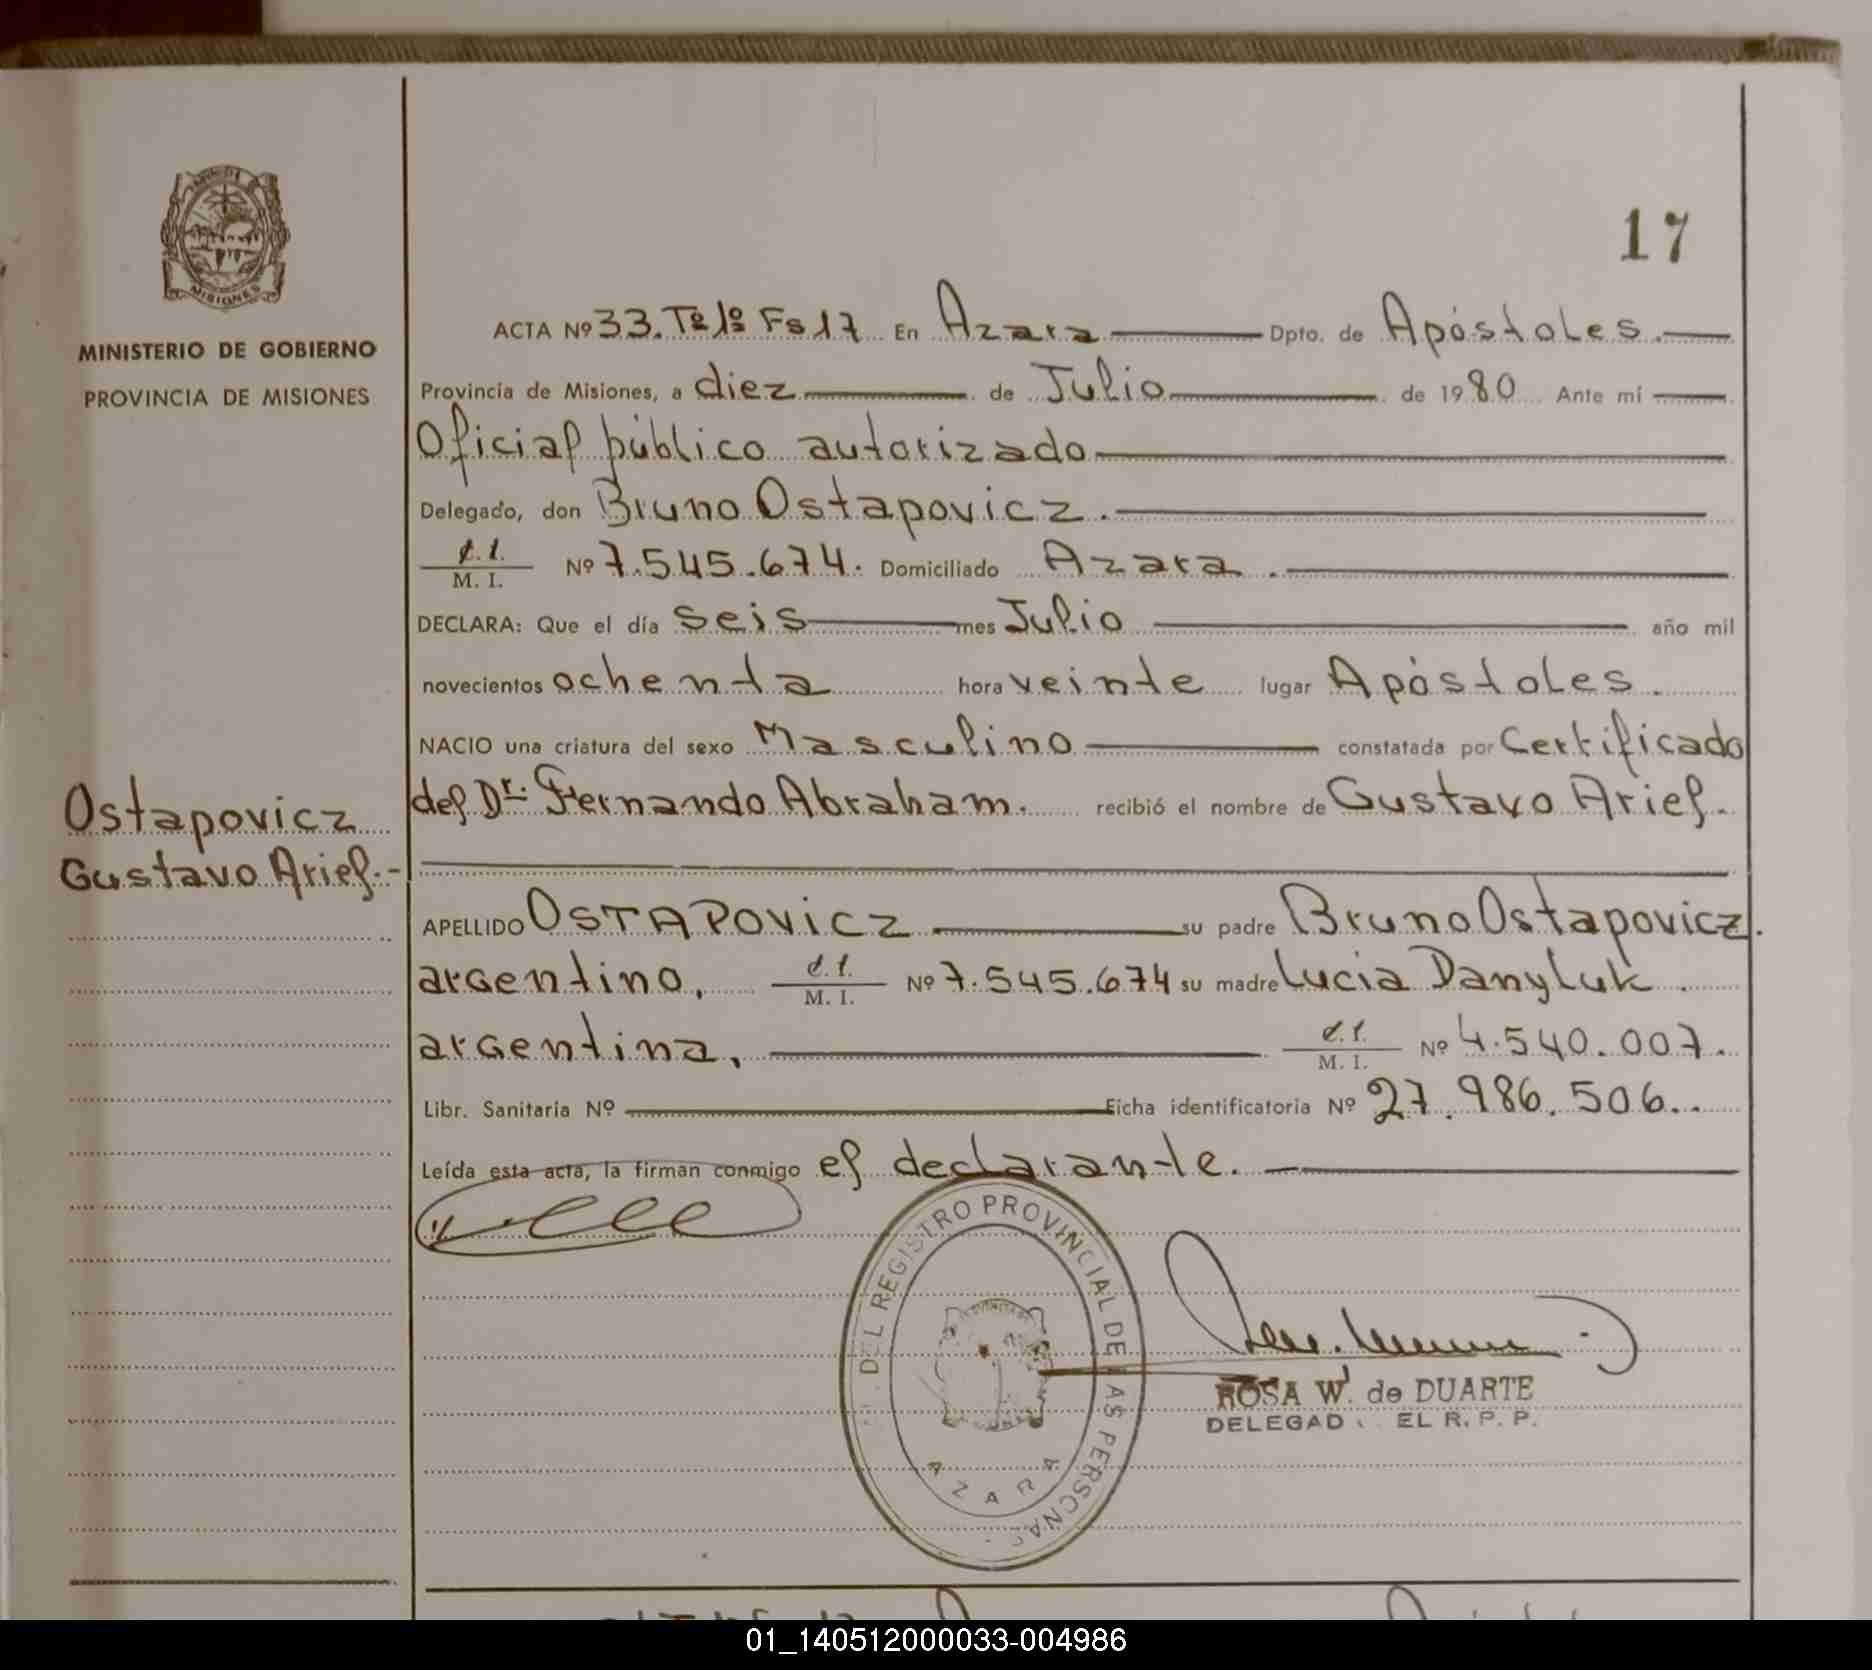 17
MISIONES
MINISTERIO DE GOBIERNO
PROVINCIA DE MISIONES
ACTA Nº 33. Tº 1º Fs 17 En Azara Dpto. de Apóstoles.
Provincia de Misiones, a diez de Julio de 1980 Ante mí
Oficial público autorizado
Delegado, don Bruno Ostapovicz.
C.I.
M. I. Nº 7.545.674. Domiciliado Azara.
DECLARA: Que el día seis mes Julio año mil
novecientos ochenta hora veinte lugar Apóstoles.
NACIO una criatura del sexo Masculino constatada por Certificado
del Dr. Fernando Abraham. recibió el nombre de Gustavo Ariel.
Ostapovicz
Gustavo Ariel.-
APELLIDO OSTAPOVICZ su padre Bruno Ostapovicz.
argentino, C.I.
M. I. Nº 7.545.674 su madre Lucia Danyluk.
argentina, C.I.
M. I. Nº 4.540.007.
Libr. Sanitaria Nº Ficha identificatoria Nº 27.986.506..
Leída esta acta, la firman conmigo el declarante.
DEL REGISTRO PROVINCIAL DE LAS PERSONAS
AZARA
ROSA W. de DUARTE
DELEGAD EL R. P. P.
01_140512000033-004986